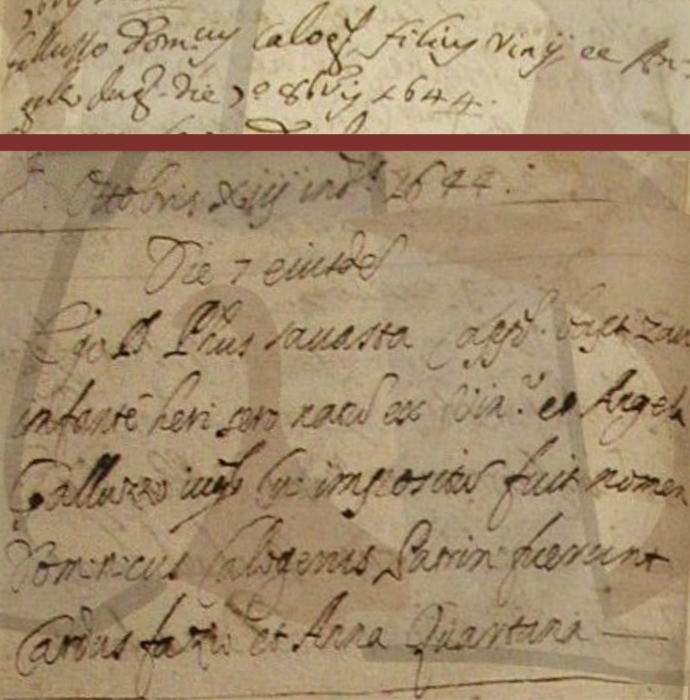 Gallusso Dom:cus Calog.s filius Vin.ij et An-
gele Jug. die 7.º 8bris 1644.
Ottobris xiij ind.s 1644.
Die 7 eiusdē
Ego D. Phus sauasta capp. bapt.zaui
infantē heri sero natū ex Vin.º et Angela
Galluzzo iug. cui impositū fuit nomen
Dominicus Calogenus Patrin fuerunt
Cardus fazio et Anna Quartana